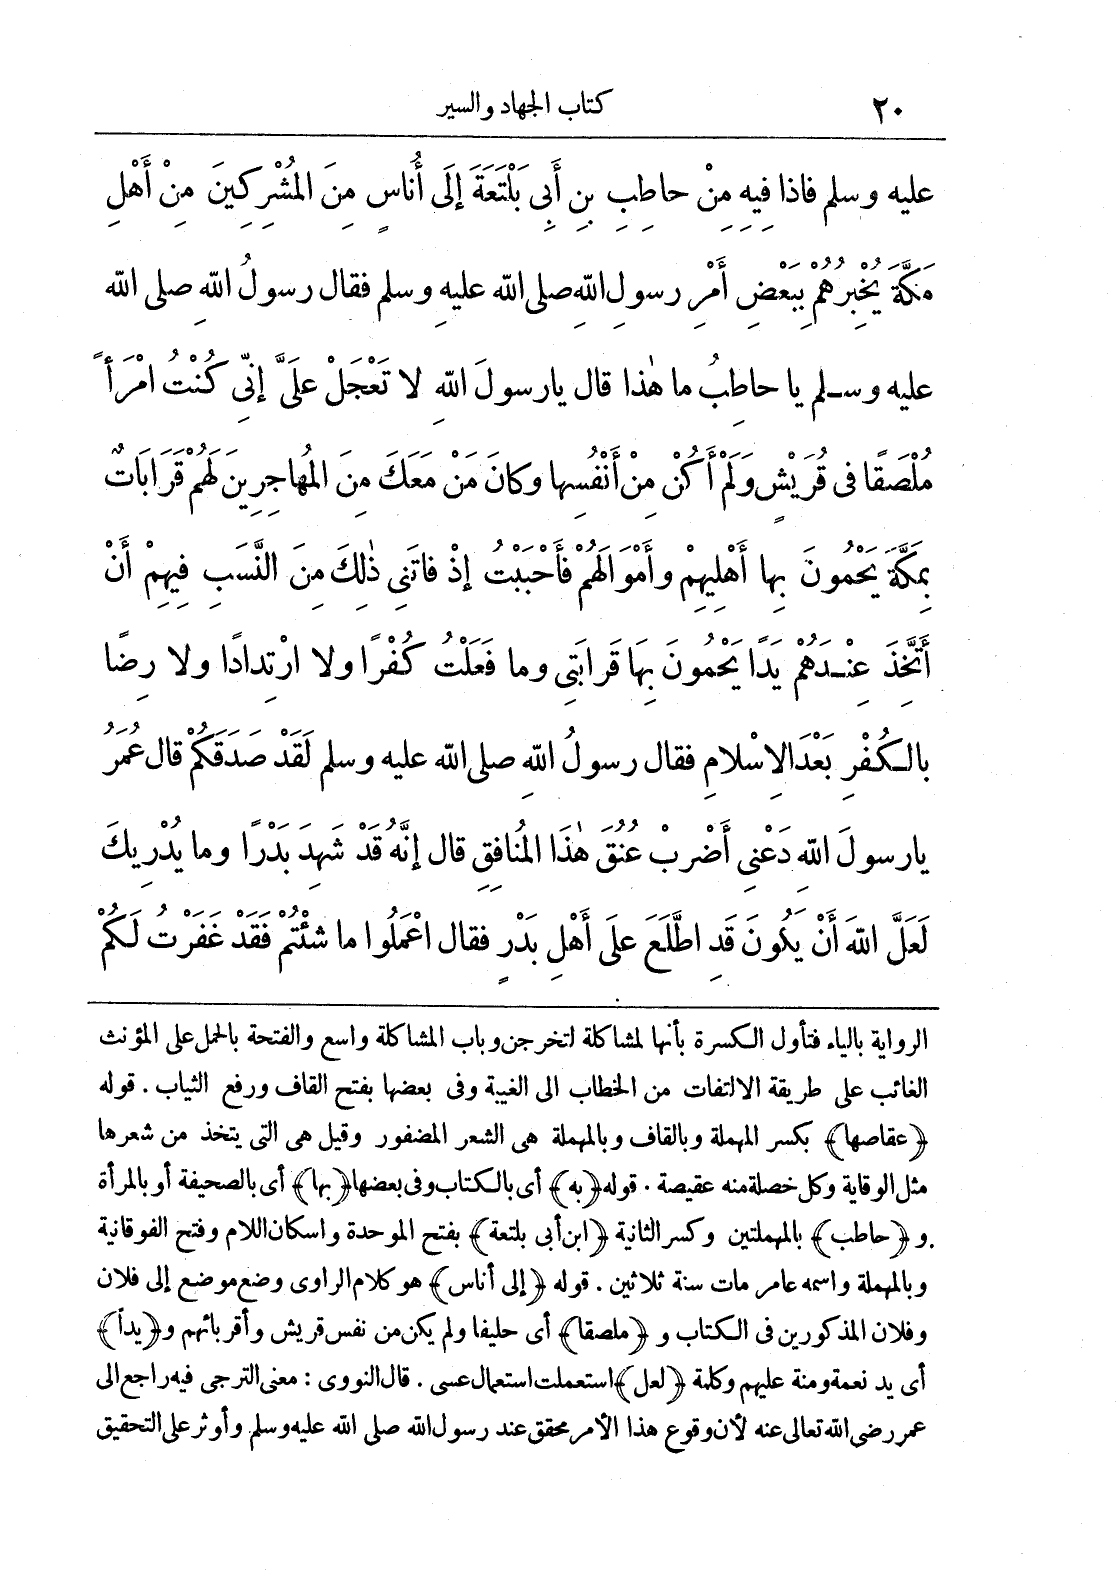 ٢٠ كتاب الجهاد والسير
عليه وسلم فاذا فِيهِ مِنْ حاطِبِ بنِ أَبِى بَلْتَعَةَ إلَى أُناسٍ مِنَ المُشْرِكِينَ مِنْ أَهْلِ
مَكَّةَ يُخْبِرُهُمْ بِبَعْضِ أَمْرِ رسولِ اللهِ صلى الله عليهِ وسلم فقال رسولُ اللهِ صلى الله
عليه وسلم يا حاطِبُ ما هٰذا قال يارسولَ اللهِ لا تَعْجَلْ عَلَىَّ إنِّى كُنْتُ امْرَأً
مُلْصَقًا فى قُرَيْشٍ وَلَمْ أَكُنْ مِنْ أَنْفُسِها وكانَ مَنْ مَعَكَ مِنَ المُهاجِرِينَ لَهُمْ قَرَابَاتٌ
بِمَكَّةَ يَحْمُونَ بِها أَهْلِيهِمْ وأَمْوَالَهُمْ فَأَحْبَبْتُ إذْ فاتَنِى ذٰلِكَ مِنَ النَّسَبِ فِيهِمْ أَنْ
أَتَّخِذَ عِنْدَهُمْ يَدًا يَحْمُونَ بِهَا قَرابَتِى وما فَعَلْتُ كُفْرًا ولا ارْتِدادًا ولا رِضًا
بالكُفْرِ بَعْدَ الإسْلامِ فقال رسولُ اللهِ صلى الله عليه وسلم لَقَدْ صَدَقَكُمْ قال عُمَرُ
يارسولَ اللهِ دَعْنِى أَضْرِبْ عُنُقَ هٰذَا المُنافِقِ قال إنَّهُ قَدْ شَهِدَ بَدْرًا وما يُدْرِيكَ
لَعَلَّ اللهَ أَنْ يَكُونَ قَدِ اطَّلَعَ علَى أَهْلِ بَدْرٍ فقال اعْمَلُوا ما شئْتُمْ فَقَدْ غَفَرْتُ لَكُمْ
الرواية بالياء فتأول الكسرة بأنها لمشاكلة لتخرجن وباب المشاكلة واسع والفتحة بالحمل على المؤنث
الغائب على طريقة الالتفات من الخطاب الى الغيبة وفى بعضها بفتح القاف ورفع الثياب . قوله
﴿عقاصها﴾ بكسر المهملة وبالقاف وبالمهملة هى الشعر المضفور وقيل هى التى يتخذ من شعرها
مثل الوقاية وكل خصلة منه عقيصة . قوله ﴿به﴾ أى بالكتاب وفى بعضها ﴿بها﴾ أى بالصحيفة أو بالمرأة
و ﴿حاطب﴾ بالمهملتين وكسر الثانية ﴿ابن أبى بلتعة﴾ بفتح الموحدة واسكان اللام وفتح الفوقانية
وبالمهملة واسمه عامر مات سنة ثلاثين . قوله ﴿إلى أناس﴾ هو كلام الراوى وضع موضع إلى فلان
وفلان المذكورين فى الكتاب و ﴿ملصقا﴾ أى حليفا ولم يكن من نفس قريش وأقربائهم و﴿يداً﴾
أى يد نعمة ومنة عليهم وكلمة ﴿لعل﴾ استعملت استعمال عسى . قال النووى : معنى الترجى فيه راجع الى
عمر رضى الله تعالى عنه لأن وقوع هذا الأمر محقق عند رسول الله صلى الله عليه وسلم وأوثر على التحقيق